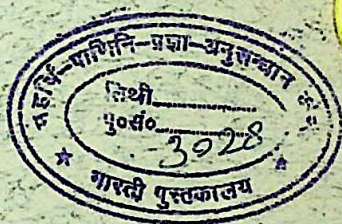 महर्षि-पाणिनि-प्रज्ञा-अनुसन्धान
तिथी
पु०सं०
3028
भारती पुस्तकालय